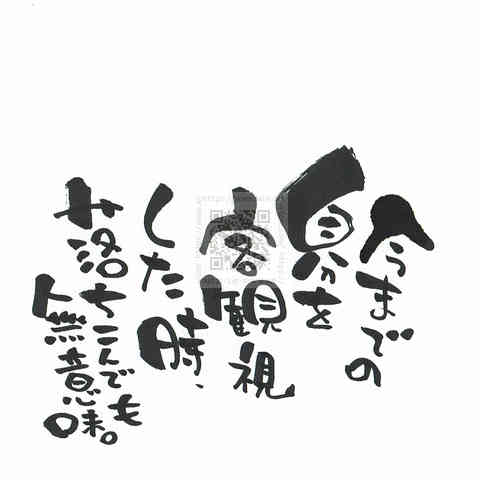 今までの
自分を
客観視
した時、
お落ちこんでも
無意味。